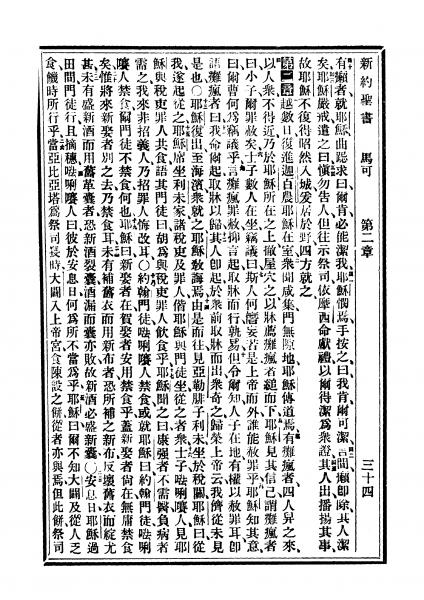 新約聖書 馬可 第二章 三十四
有癩者就耶穌曲跽求曰爾肯必能潔我耶穌憫焉手按之曰我肯爾可潔言間癩卽除其人潔
矣耶穌嚴戒遣之曰愼勿告人但往示祭司依摩西命獻禮以爾得潔爲衆證其人出播揚其事
故耶穌不復得昭然入城爰居於野四方就之
第二章 越數日復進迦百農耶穌在室衆聞咸集門無隙地耶穌傳道焉有癱瘋者四人舁之來
以人衆不得近乃於耶穌所在之上徹屋穴之以牀薦癱瘋者縋而下耶穌見其信謂癱瘋者
曰小子爾罪赦矣士子數人在坐竊議曰斯人何僭妄若是上帝而外誰能赦罪乎耶穌知其意
曰爾曹何爲竊議乎言癱瘋罪赦抑言起取牀而行孰易但令爾知人子在地有權以赦罪耳卽
語癱瘋者曰我命爾起取牀以歸其人卽起於衆前取牀而出衆奇之歸榮上帝云我儕從未見
是也○耶穌復出至海濱衆就之耶穌敎誨焉由是而往見亞勒腓子利未坐於稅關耶穌曰從
我遂起從之耶穌席坐利未家諸稅吏及罪人偕耶穌與門徒坐從之者衆士子𠵽唎㘔人見耶
穌與稅吏罪人共食語其門徒曰胡爲與稅吏罪人飲食乎耶穌聞之曰康强者不需醫負病者
需之我來非招義人乃招罪人悔改耳○約翰門徒𠵽唎㘔人禁食或就耶穌曰約翰門徒𠵽唎
㘔人禁食爾門徒不禁食何也耶穌曰新娶者在賀娶者安用禁食乎蓋新娶者尙在無庸禁食
矣惟將來新娶者別之去乃禁食耳未有補舊衣而用新布者恐所補之新布反壞舊衣而綻尤
甚未有盛新酒而用舊革囊者恐新酒裂囊酒漏而囊亦敗故新酒必盛新囊○安息日耶穌過
田間門徒行且摘穗𠵽唎㘔人曰彼於安息日何爲所不當爲乎耶穌曰爾不知大闢及從人乏
食饑時所行乎當亞比亞塔爲祭司長時大闢入上帝宮食陳設之餅從者亦與焉但此餅祭司